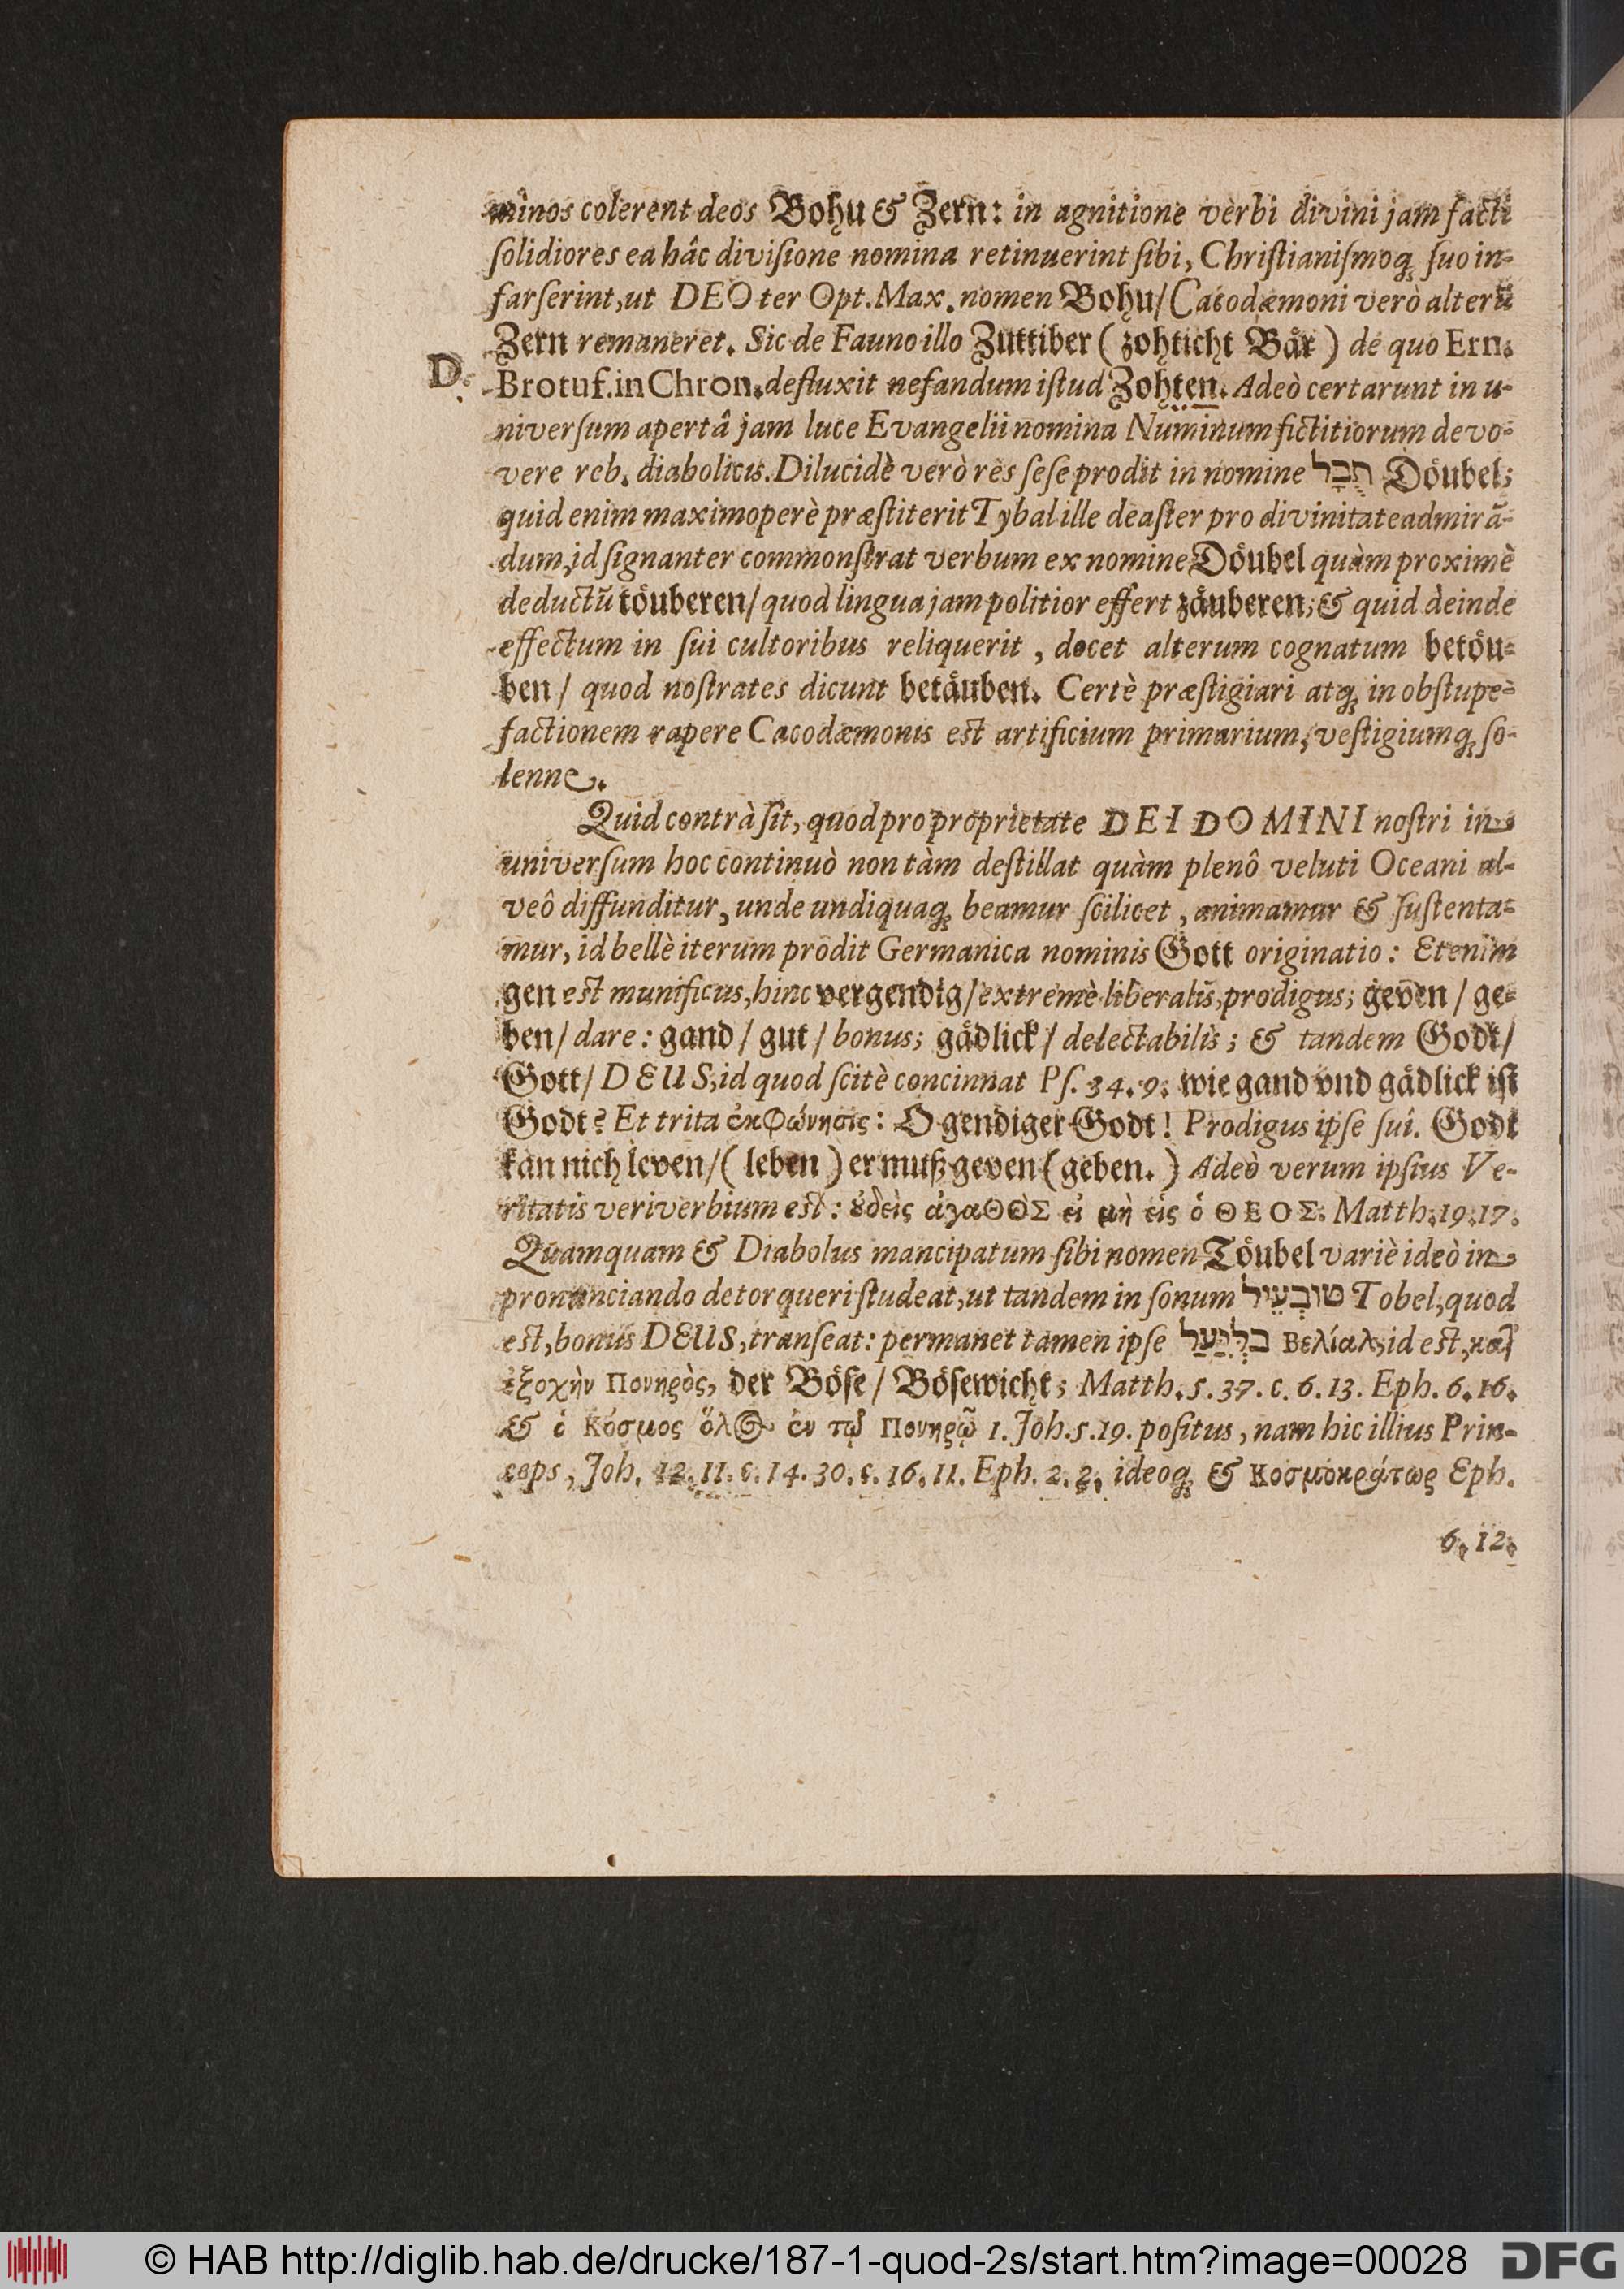 minos colerent deos Bohu & Zern: in agnitione verbi divini jam facti
ſolidiores ea hâc diviſione nomina retinuerint ſibi, Chriſtianiſmoq́ꝫ ſuo in-
farſerint, ut DEO ter Opt. Max. nomen Bohu/ Cacodæmoni verò alterũ
Zern remaneret. Sic de Fauno illo Zuttiber (zohticht Bår) de quo Ern.
D.
Brotuf. in Chron. defluxit nefandum iſtud Zohten. Adeò certarunt in u-
niverſum apertâ jam luce Evangelii nomina Numinum fictitiorum devo-
vere reb. diabolicis. Dilucidè verò res ſeſe prodit in nomine תֻבָל Döubel;
quid enim maximoperè præſtiterit Tybal ille deaſter pro divinitate admirã-
dum, id ſignanter commonſtrat verbum ex nomine Döubel quàm proximè
deductũ töuberen/ quod lingua jam politior effert zäuberen; & quid deinde
effectum in ſui cultoribus reliquerit, docet alterum cognatum betöu-
ben/ quod noſtrates dicunt betäuben. Certè præſtigiari atq́ꝫ in obſtupe-
factionem rapere Cacodæmonis eſt artificium primarium, veſtigiumq́ꝫ ſo-
lenne.
Quid contrà ſit, quod pro proprietate DEI DOMINI noſtri in
univerſum hoc continuò non tàm deſtillat quàm plenô veluti Oceani al-
veô diffunditur, unde undiquaq́ꝫ beamur ſcilicet, animamur & ſuſtenta-
mur, id bellè iterum prodit Germanica nominis Gott originatio: Etenim
gen eſt munificus, hinc vergendig/ extremè liberalis, prodigus; geven/ ge-
ben/ dare: gand/ gut/ bonus; gådlick/ delectabilis; & tandem Godt/
Gott/ DEUS, id quod ſcitè concinnat Pſ. 34. 9. wie gand vnd gådlick iſt
Godt? Et trita ἐκφώνησις: O gendiger Godt! Prodigus ipſe ſui. Godt
kan nich leven/ (leben) er muß geven (geben.) Adeò verum ipſius Ve-
ritatis veriverbium eſt: ȣ̓δεὶς ἀγαΘὸΣ εἰ μὴ εἷς ὁ ΘΕΟΣ. Matth. 19. 17.
Quamquam & Diabolus mancipatum ſibi nomen Töubel variè ideò in
pronunciando detorqueri ſtudeat, ut tandem in ſonum טוּבְעֵיל Tobel, quod
eſt, bonus DEUS, tranſeat: permanet tamen ipſe בְלִיַּעַל Βελίαλ, id eſt, κατ᾽
ἐξοχὴν Πονηρὸς, der Böſe/ Böſewicht; Matth. 5. 37. c. 6. 13. Eph. 6. 16.
& ὁ Κόσμος ὅλος ἐν τῷ Πονηρῷ 1. Joh. 5. 19. poſitus, nam hic illius Prin-
ceps, Joh. 12. 11. c. 14. 30. c. 16. 11. Eph. 2. 2. ideoq́ꝫ & Κοσμοκράτωρ Eph.
6. 12.
© HAB http://diglib.hab.de/drucke/187-1-quod-2s/start.htm?image=00028
DFG